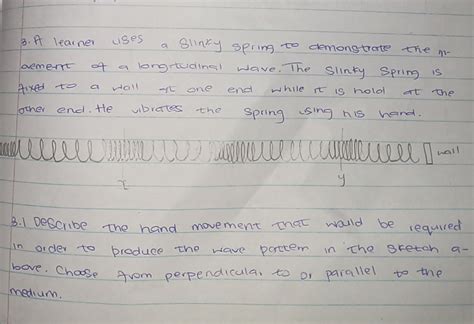 3. A learner uses a slinky spring to demonstrate the m-
ovement of a longitudinal wave. The slinky spring is
fixed to a wall at one end while it is hold at the
other end. He vibrates the spring using his hand.
wall
x y
3.1 Describe the hand movement that would be required
in order to produce the wave pattern in the sketch a-
bove. Choose from perpendicular to or parallel to the
medium.